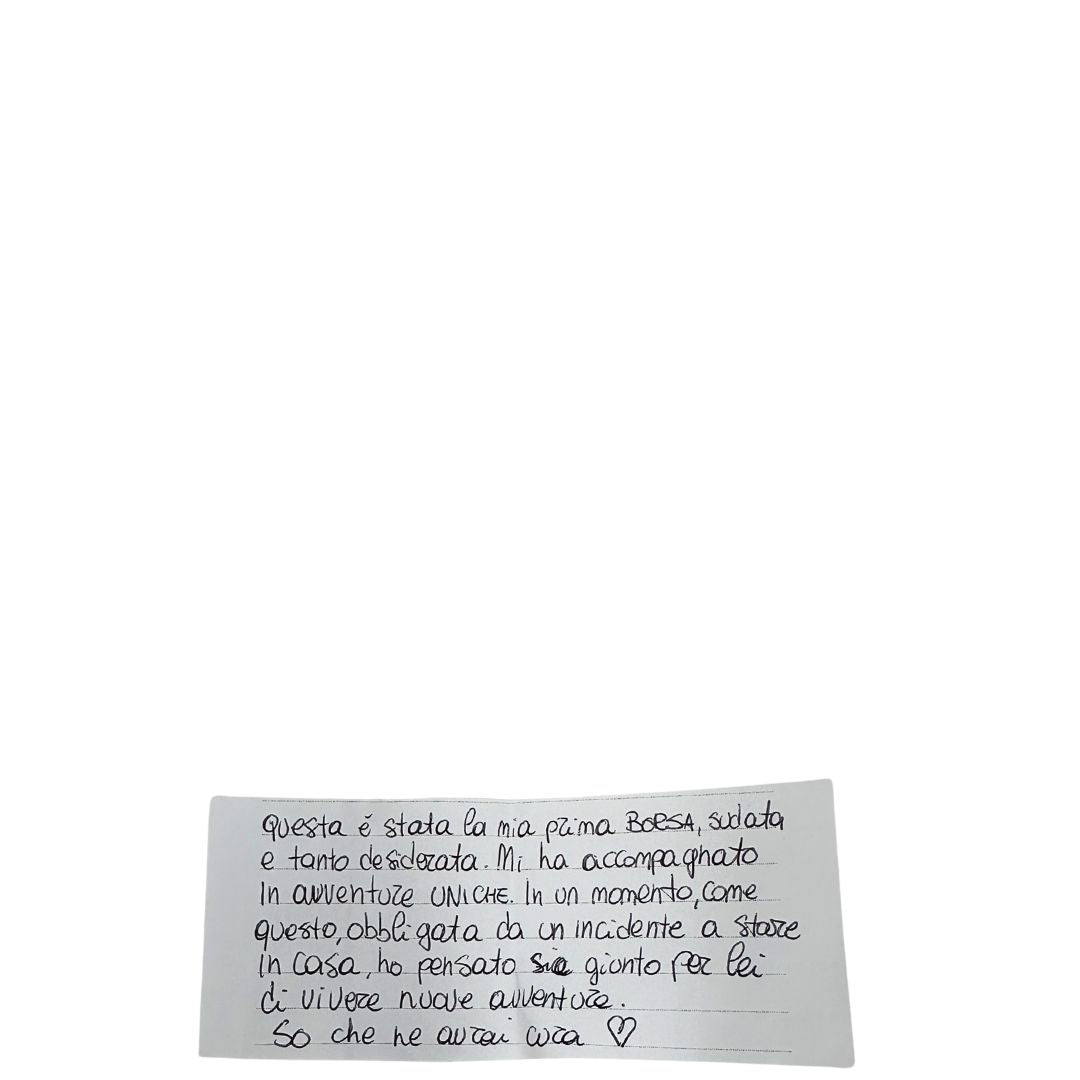 Questa é stata la mia prima BORSA, sudata
e tanto desiderata. Mi ha accompagnato
in avventure UNICHE. In un momento, come
questo, obbligata da un incidente a stare
in casa, ho pensato sia giunto per lei
di vivere nuove avventure.
So che ne avrai cura ♡